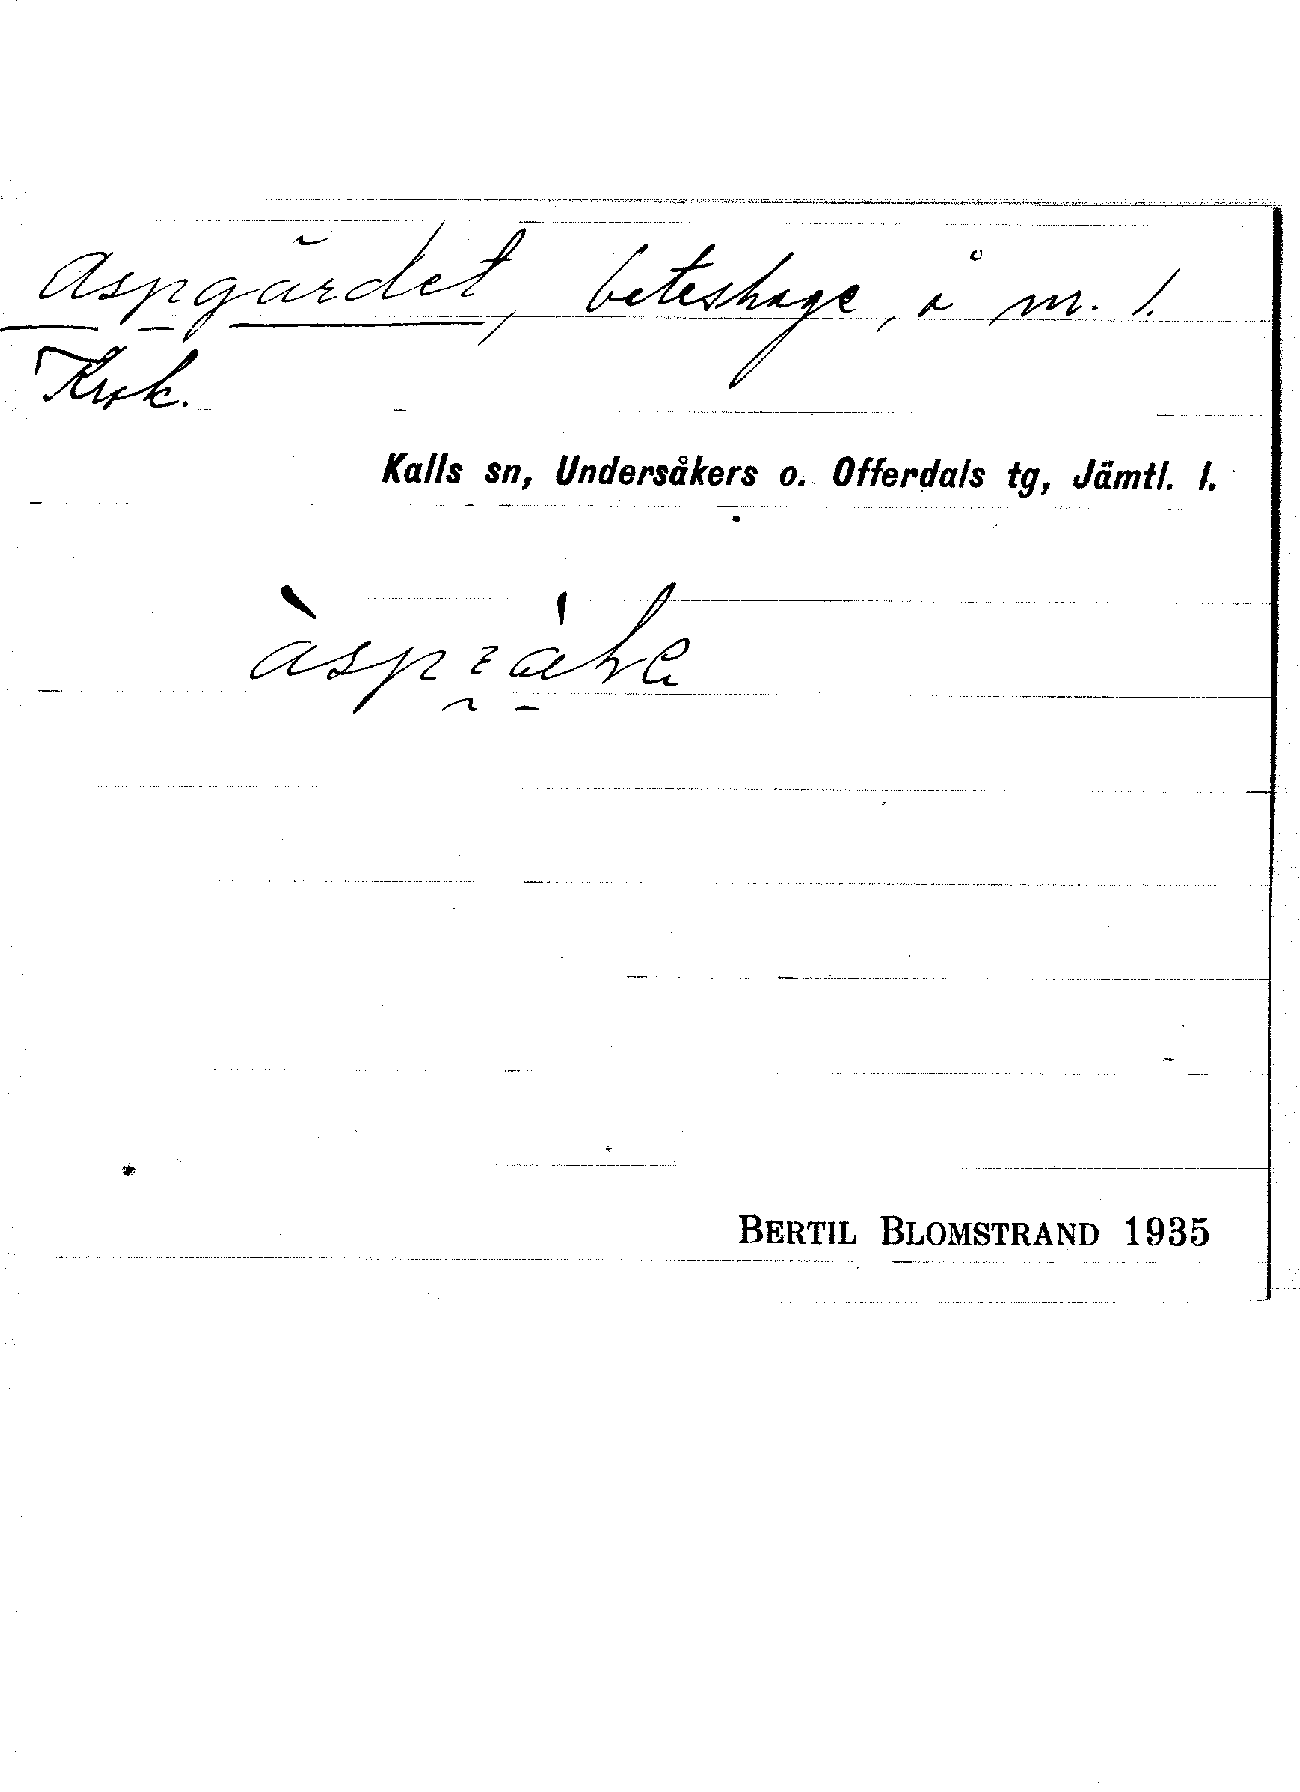 Aspgärdet, beteshage, å nr. 1.
Krok.
Kalls sn, Undersåkers o. Offerdals tg, Jämtl. l.
BERTIL BLOMSTRAND 1935